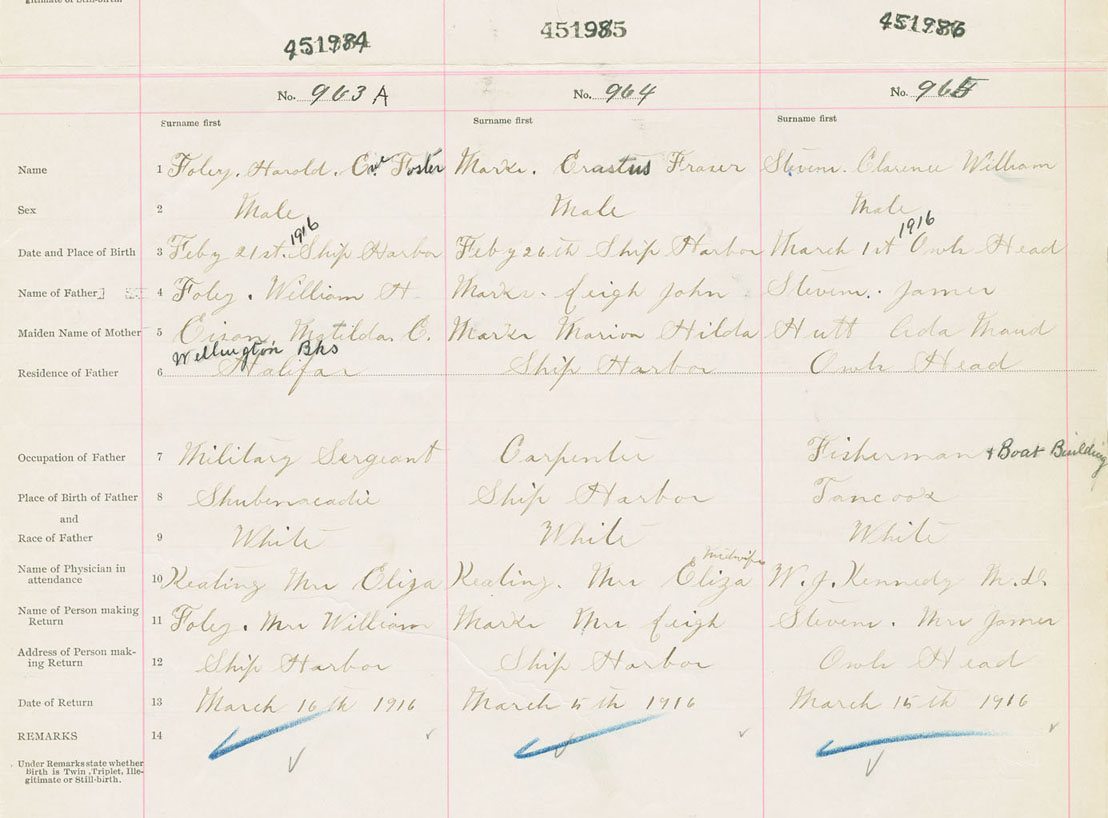 gitimate or Still-birth.
451984 451985 451986
No. 963 A No. 964 No. 965
Surname first Surname first Surname first
Name 1 Foley. Harold. Foster Marks. Erastus Fraser Stevens. Clarence William
Sex 2 Male Male Male
1916 1916
Date and Place of Birth 3 Feby 21st. Ship Harbor Feby 26th Ship Harbor March 1st Owls Head
Name of Father 4 Foley. William H. Marks. Leigh John Stevens. James
Maiden Name of Mother 5 Eisan, Matilda. C. Marks Marion Hilda Hutt Ada Maud
Wellington Bks
Residence of Father 6 Halifax Ship Harbor Owls Head
Occupation of Father 7 Military Sergeant Carpenter Fisherman + Boat Building
Place of Birth of Father 8 Shubenacadie Ship Harbor Tancook
and
Race of Father 9 White White White
Midwife
Name of Physician in
attendance 10 Keating Mrs Eliza Keating. Mrs Eliza W. J. Kennedy M. D.
Name of Person making
Return 11 Foley. Mrs William Marks Mrs Leigh Stevens. Mrs James
Address of Person mak-
ing Return 12 Ship Harbor Ship Harbor Owls Head
Date of Return 13 March 16th 1916 March 15th 1916 March 15th 1916
REMARKS 14
Under Remarks state whether
Birth is Twin, Triplet, Ille-
gitimate or Still-birth.